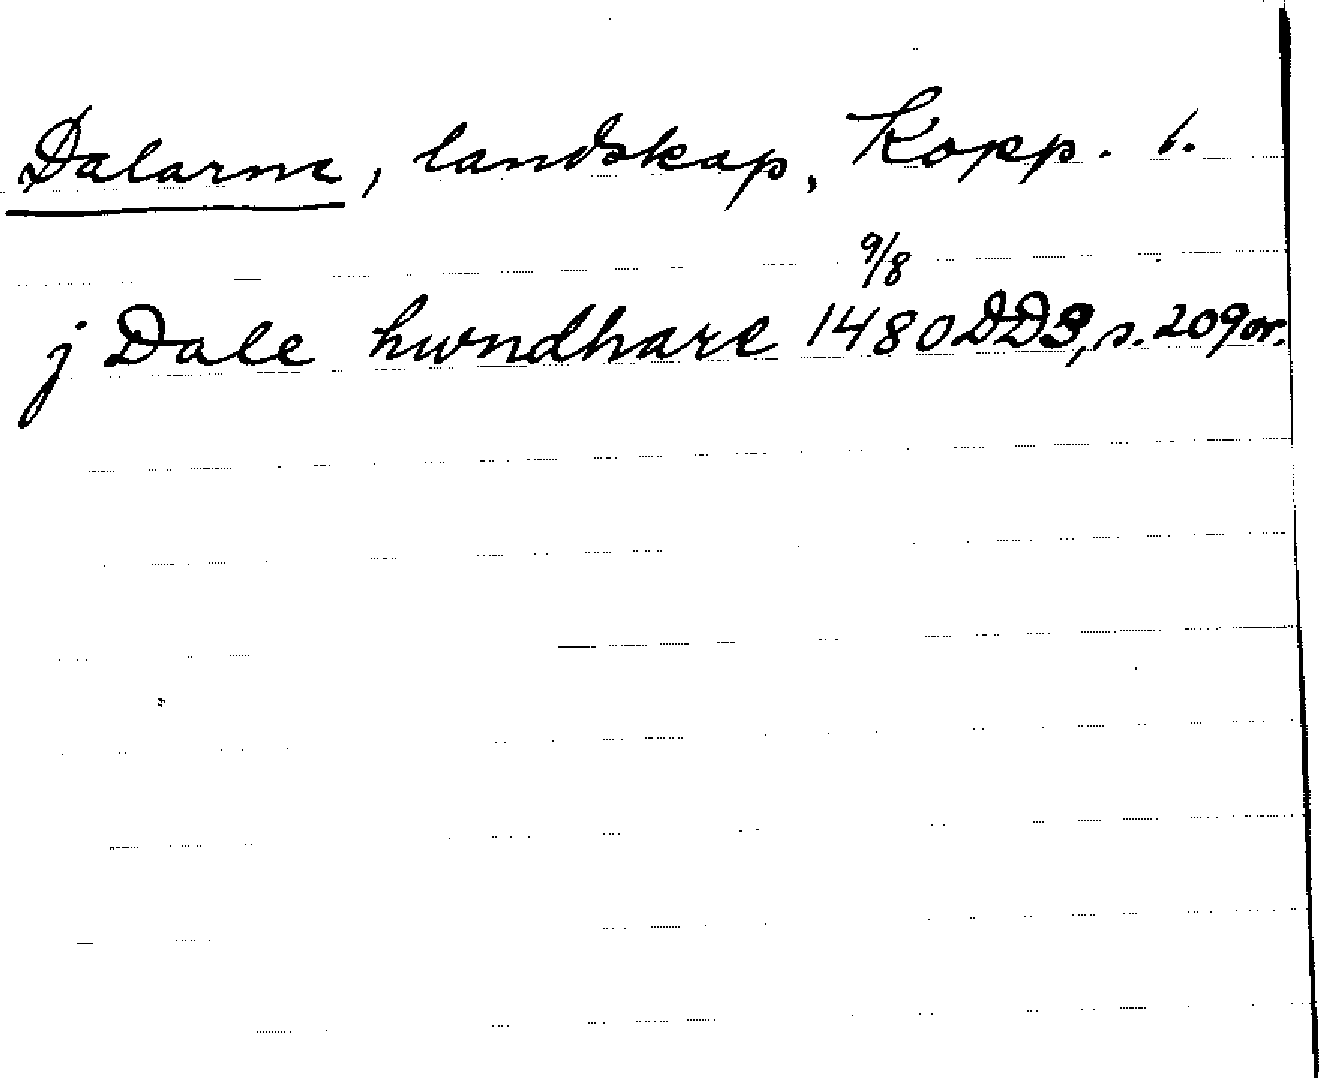 Dalarna, landskap, Kopp. l.
9/8
j Dale hwndhare 1480 DD3, s. 209 or.